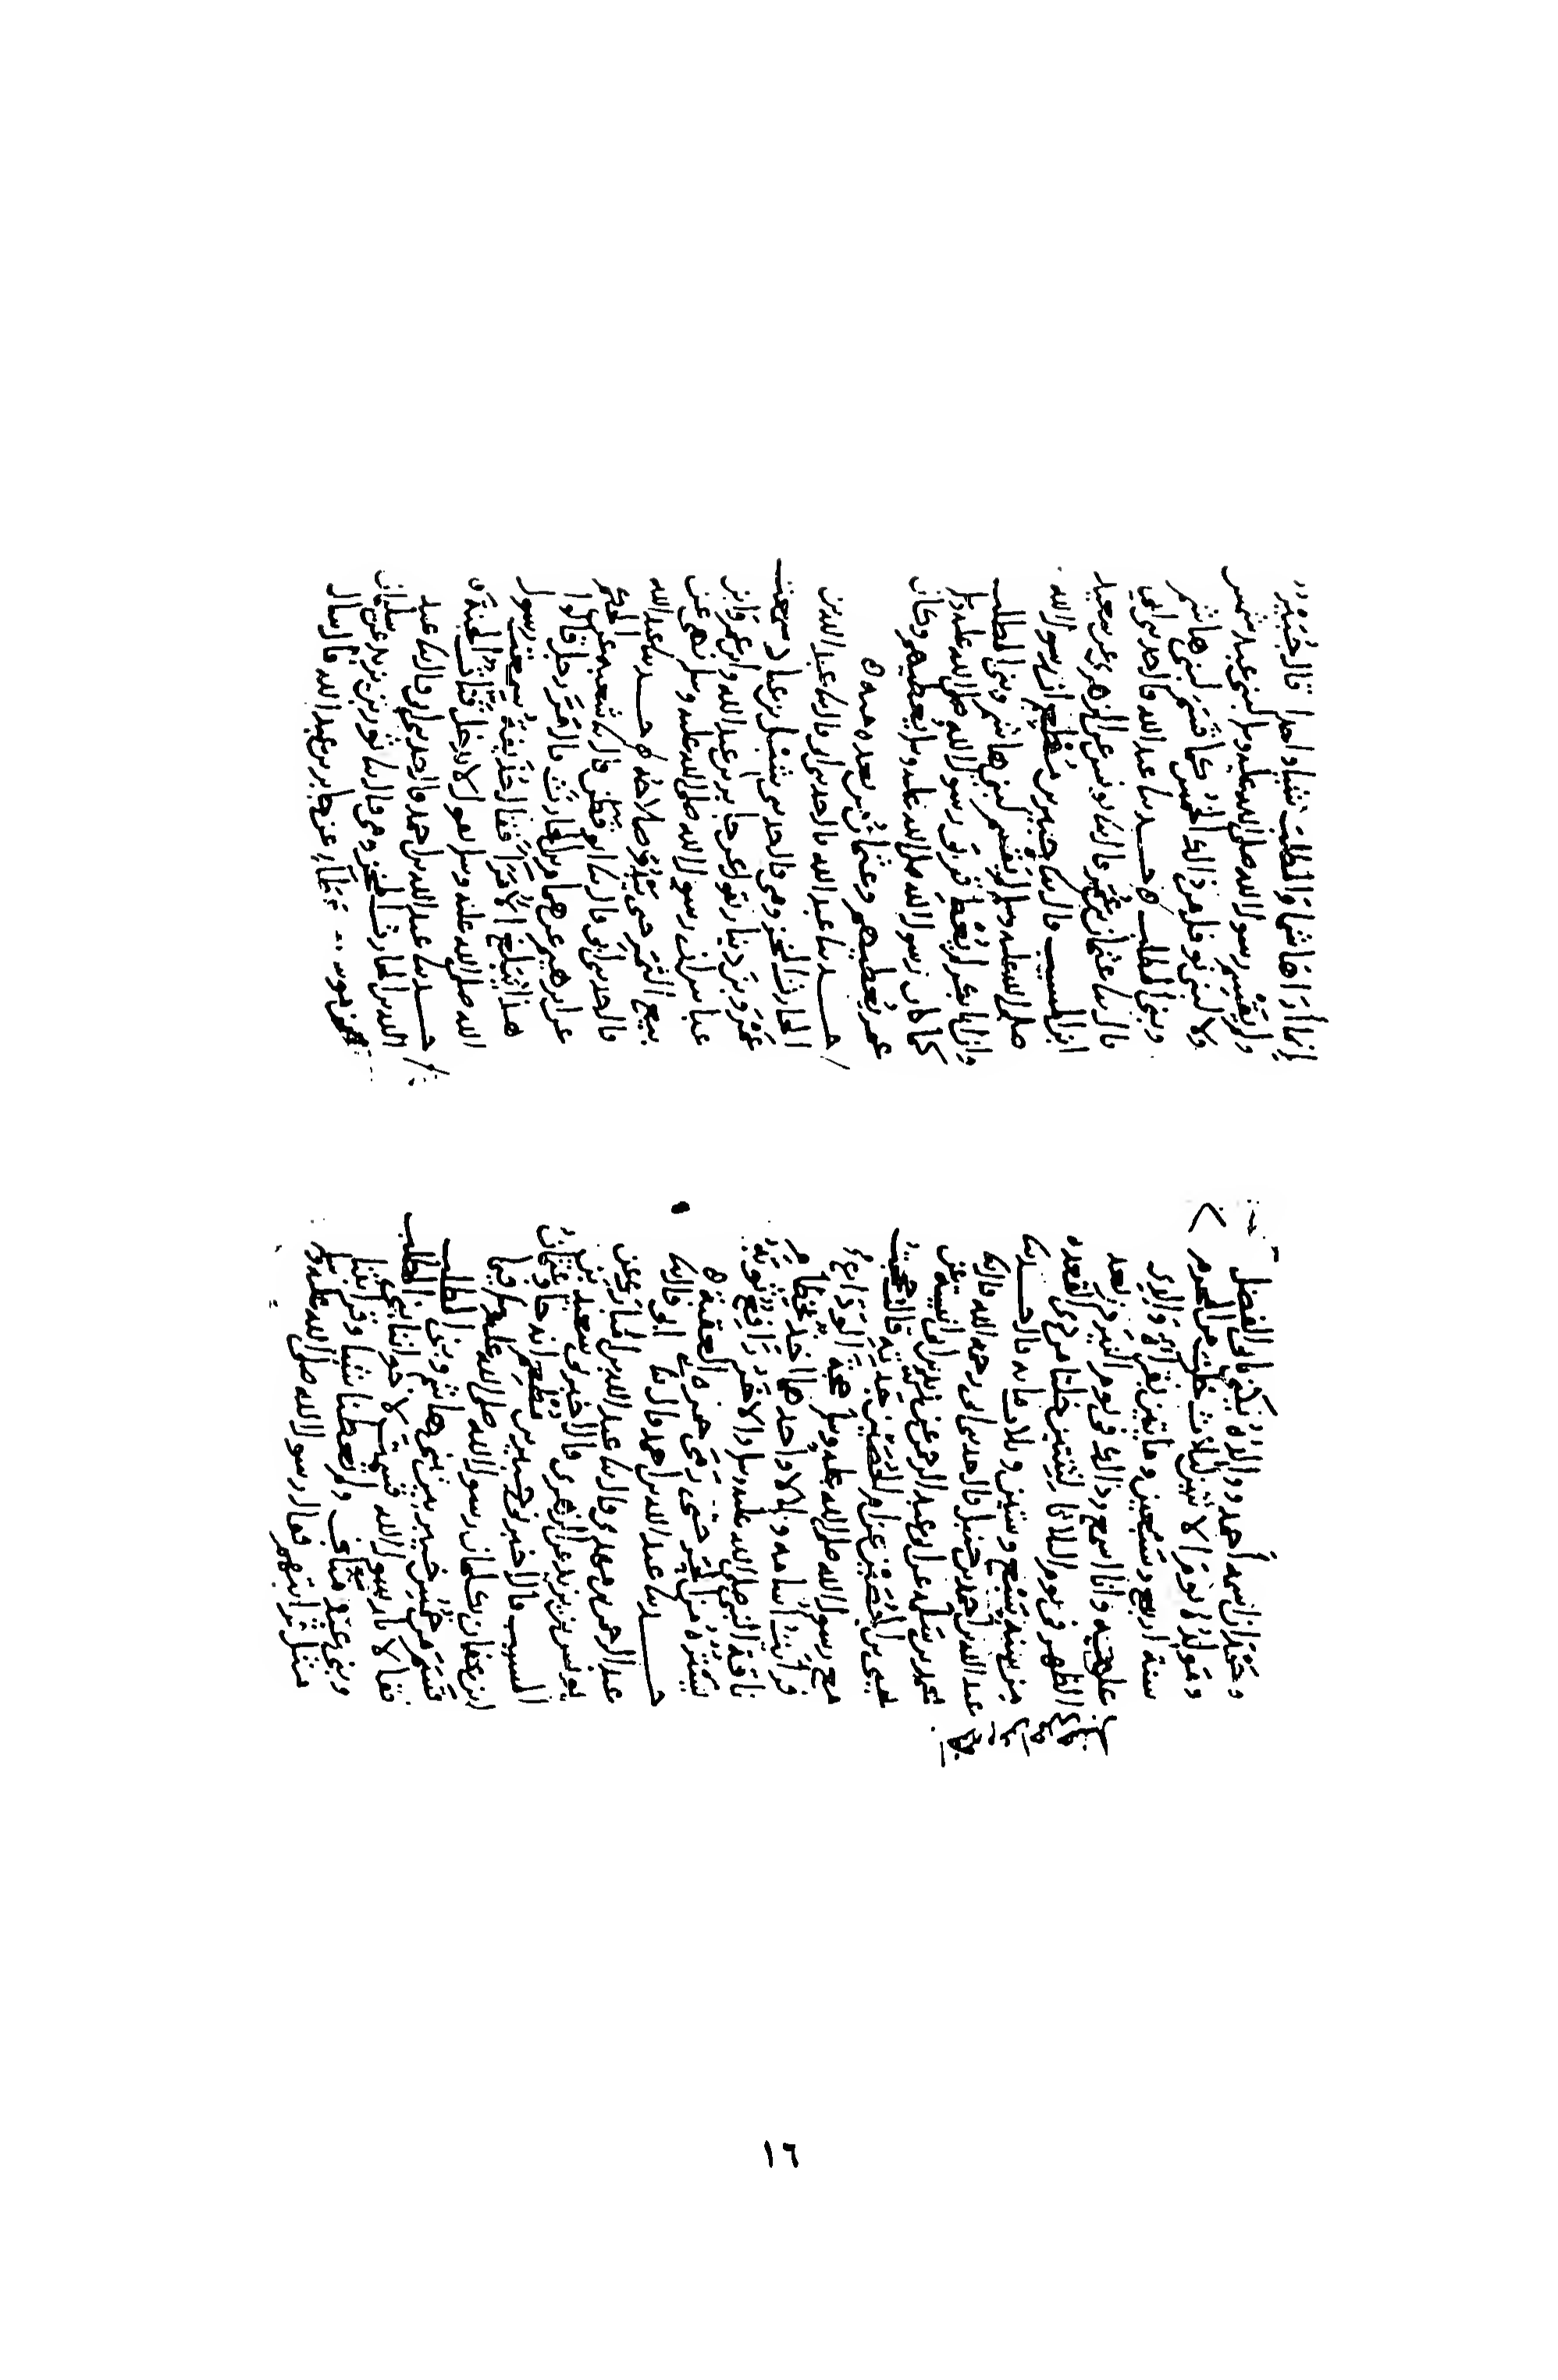 ان اسمه أحمد ووالده يكنى بابى الفضل
ومولده يوم الاثنين لثلاث خلت من المحرم
سنة اربع وسبعين ومايتين بقراءة والدى
عليه وانا اسمع وذلك فى يوم بعد
الظهر فى يوم الثلاثا لليلتين خلتا من ذى القعده
من سنة تسع وستين وثلاثمايه قال حدثنا
عبد الله بن احمد بن حنبل قال حدثنى ابى رحمه الله قال ثنا
محمد بن سلمه عن ابى عبد الرحيم عن زيد بن ابى انيسه عن
يحيى بن الحصين عن ام الحصين جدته قالت حججت
مع رسول الله صلى الله عليه وسلم حجة الوداع
فرأيت اسامه وبلالا واحدهما اخذ بخطام
ناقة النبى صلى الله عليه وسلم والاخر رافع ثوبه
يستره من الحر حتى رمى جمرة العقبه ه
حدثنا عبد الله بن احمد قال ثنا ابى قال ثنا
عبد الرحمن بن مهدى قال ثنا عبد الله بن المبارك عن
يونس بن يزيد عن الزهرى قال اخبرنى سعيد بن
المسيب قال اخبرنى جبير بن مطعم انه جا وعثمان
ابن عفان يكلمان رسول الله صلى الله عليه وسلم فيما
قسم من خمس خيبر بين بنى هاشم وبنى المطلب
فقالا يا رسول الله قسمت لاخواننا بنى المطلب
وبنى عبد مناف ولم تعطنا شيا وقرابتنا
مثل قرابتهم فقال رسول الله صلى الله عليه وسلم
إنما أرى هاشما والمطلب شيا واحدا قال جبير
ولم يقسم رسول الله صلى الله عليه وسلم لبنى عبد شمس
ولا لبنى نوفل من ذلك الخمس كما قسم لبنى هاشم
وبنى المطلب ه حدثنا عبد الله قال حدثنى ابى
قال ثنا عثمان بن عمر قال ثنا يونس عن الزهرى عن سعيد
ابن المسيب قال ثنا جبير بن مطعم ان رسول الله
صلى الله عليه وسلم لم يقسم لبنى هاشم وبنى المطلب
وان ابا بكر لم يعط قربى رسول الله صلى الله عليه وسلم
كما كان رسول الله صلى الله عليه وسلم يعطيهم وكان
عمر يعطيهم وعثمان من بعده منه ه
حدثنا عبد الله قال حدثنى ابى قال ثنا عبد الله بن
الحارث المخزومى قال حدثنى شبل بن عباد وسمعت
عمرو بن دينار يقول عن جابر بن عبد الله وابن عمر وابن
عباس ان رسول الله صلى الله عليه وسلم نهى عن
بيع الثمر حتى يبدو صلاحه ه حدثنا عبد الله
قال حدثنى ابى قال ثنا ابو قطن قال ثنا شعبه عن الحكم
عن ابرهيم عن همام بن الحارث قال مر رجل قالوا
هذا مبلغ الأمرا فقال حذيفة سمعت رسول
الله صلى الله عليه وسلم يقول لا يدخل قتات الجنة ه
حدثنا عبد الله بن احمد قال حدثنى ابى قال ثنا عبد
الله بن الحارث المخزومى قال ثنا ثور بن يزيد عن سليمان
بن موسى عن عطاء عن جابر بن عبد الله قال قال
١٦